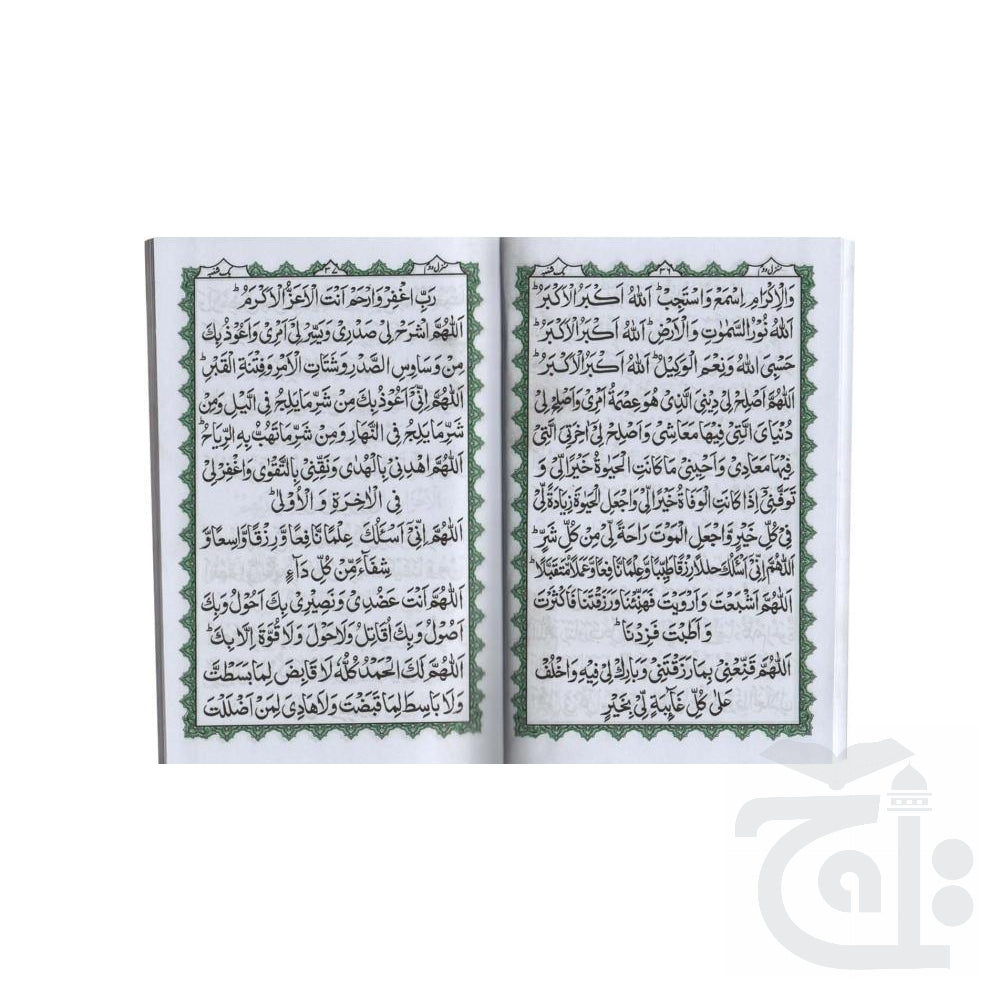 منزل دوم ٣٦ يكشنبه
وَالْاِكْرَامِ اِسْمَعْ وَاسْتَجِبْ ؕ اَللهُ اَكْبَرُ الْاَكْبَرُ ؕ
اَللهُ نُوْرُ السَّمٰوٰتِ وَالْاَرْضِ ؕ اَللهُ اَكْبَرُ الْاَكْبَرُ ؕ
حَسْبِيَ اللهُ وَنِعْمَ الْوَكِيْلُ ؕ اَللهُ اَكْبَرُ الْاَكْبَرُ ؕ
اَللّٰهُمَّ اَصْلِحْ لِيْ دِيْنِيَ الَّذِيْ هُوَ عِصْمَةُ اَمْرِيْ وَاَصْلِحْ لِيْ
دُنْيَايَ الَّتِيْ فِيْهَا مَعَاشِيْ وَاَصْلِحْ لِيْ اٰخِرَتِيَ الَّتِيْ
فِيْهَا مَعَادِيْ وَاَحْيِنِيْ مَا كَانَتِ الْحَيٰوةُ خَيْرًا لِّيْ وَ
تَوَفَّنِيْ اِذَا كَانَتِ الْوَفَاةُ خَيْرًا لِّيْ وَاجْعَلِ الْحَيٰوةَ زِيَادَةً لِّيْ
فِيْ كُلِّ خَيْرٍ وَّاجْعَلِ الْمَوْتَ رَاحَةً لِّيْ مِنْ كُلِّ شَرٍّ ؕ
اَللّٰهُمَّ اِنِّيْ اَسْئَلُكَ حَلَالًا رِزْقًا طَيِّبًا وَّعِلْمًا نَّافِعًا وَّعَمَلًا مُّتَقَبَّلًا ؕ
اَللّٰهُمَّ اَشْبَعْتَ وَاَرْوَيْتَ فَهَنِّئْنَا وَرَزَقْتَنَا فَاَكْثَرْتَ
وَاَطَبْتَ فَزِدْنَا ؕ
اَللّٰهُمَّ قَنِّعْنِيْ بِمَا رَزَقْتَنِيْ وَبَارِكْ لِيْ فِيْهِ وَاخْلُفْ
عَلٰى كُلِّ غَآئِبَةٍ لِّيْ بِخَيْرٍ
منزل دوم ٣٧ يكشنبه
رَبِّ اغْفِرْ وَارْحَمْ اَنْتَ الْاَعَزُّ الْاَكْرَمُ ؕ
اَللّٰهُمَّ اشْرَحْ لِيْ صَدْرِيْ وَيَسِّرْ لِيْ اَمْرِيْ وَاَعُوْذُ بِكَ
مِنْ وَّسَاوِسِ الصَّدْرِ وَشَتَاتِ الْاَمْرِ وَفِتْنَةِ الْقَبْرِ ؕ
اَللّٰهُمَّ اِنِّيْ اَعُوْذُ بِكَ مِنْ شَرِّ مَا يَلِجُ فِي الَّيْلِ وَمِنْ
شَرِّ مَا يَلِجُ فِي النَّهَارِ وَمِنْ شَرِّ مَا تَهُبُّ بِهِ الرِّيَاحُ ؕ
اَللّٰهُمَّ اهْدِنِيْ بِالْهُدٰى وَنَقِّنِيْ بِالتَّقْوٰى وَاغْفِرْ لِيْ
فِي الْاٰخِرَةِ وَالْاُوْلٰى ؕ
اَللّٰهُمَّ اِنِّيْ اَسْئَلُكَ عِلْمًا نَّافِعًا وَّرِزْقًا وَّاسِعًا وَّ
شِفَآءً مِّنْ كُلِّ دَآءٍ
اَللّٰهُمَّ اَنْتَ عَضُدِيْ وَنَصِيْرِيْ بِكَ اَحُوْلُ وَبِكَ
اَصُوْلُ وَبِكَ اُقَاتِلُ وَلَا حَوْلَ وَلَا قُوَّةَ اِلَّا بِكَ ؕ
اَللّٰهُمَّ لَكَ الْحَمْدُ كُلُّهٗ لَا قَابِضَ لِمَا بَسَطْتَّ
وَلَا بَاسِطَ لِمَا قَبَضْتَ وَلَا هَادِيَ لِمَنْ اَضْلَلْتَ